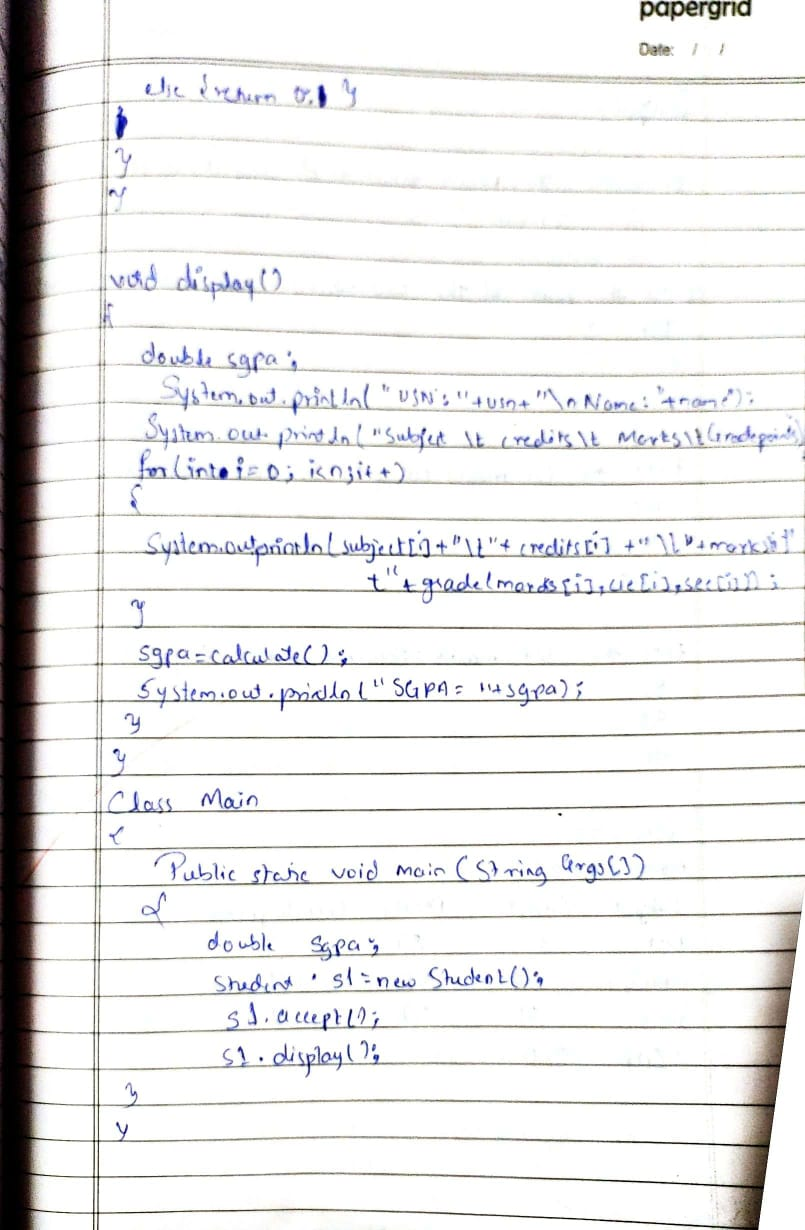 papergrid
Date: / /
else {return 0; }
}
}
void display()
{
double sgpa;
System.out.println("USN:"+usn+"\n Name: "+name);
System.out.println("Subject \t credits\t Marks\t Gradepoints
for(int i=0; i<n;i++)
{
System.out.println(subject[i]+"\t"+ credits[i] +"\t"+marks[i]+"
t"+grade(marks[i],cie[i],see[i]));
}
sgpa=calculate();
System.out.println("SGPA= "+sgpa);
}
}
Class Main
{
Public static void main (String args[])
{
double sgpa;
Student s1=new Student();
s1.accept();
s1.display();
}
}